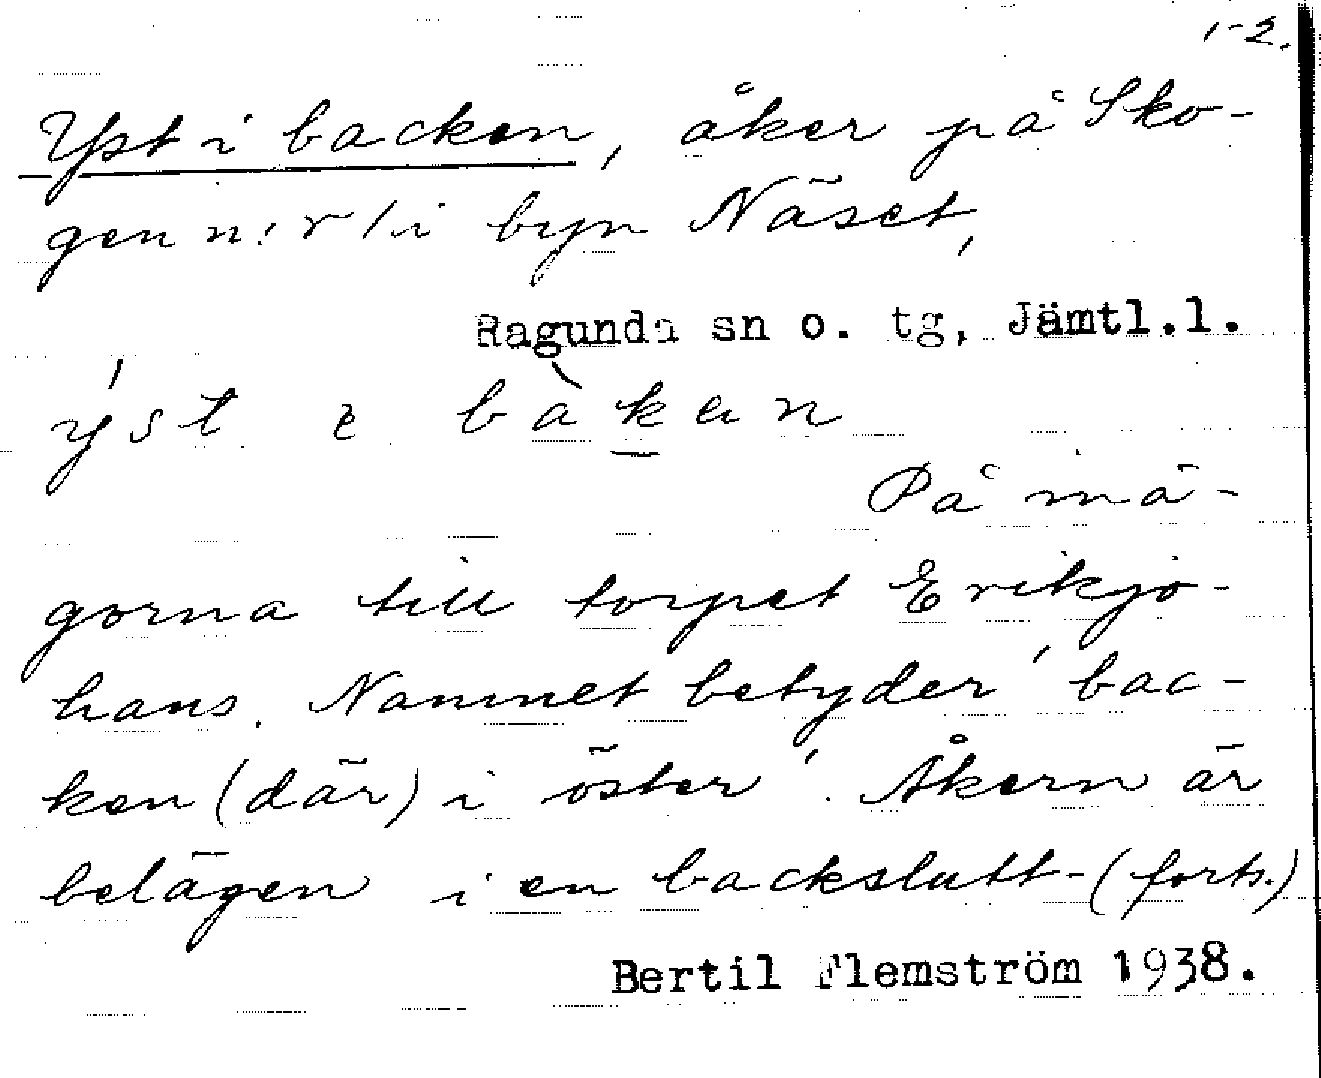 1-2.
Yst i backen, åker på Sko-
gen n:r 1 i byn Näset,
Ragunda sn o. tg, Jämtl.l.
ýst ɛ bàkan
På må-
gorna till torpet Erikjo-
hans. Namnet betyder 'bac-
ken (där) i öster'. Åkern är
belägen i en backslutt- (forts.)
Bertil Flemström 1938.